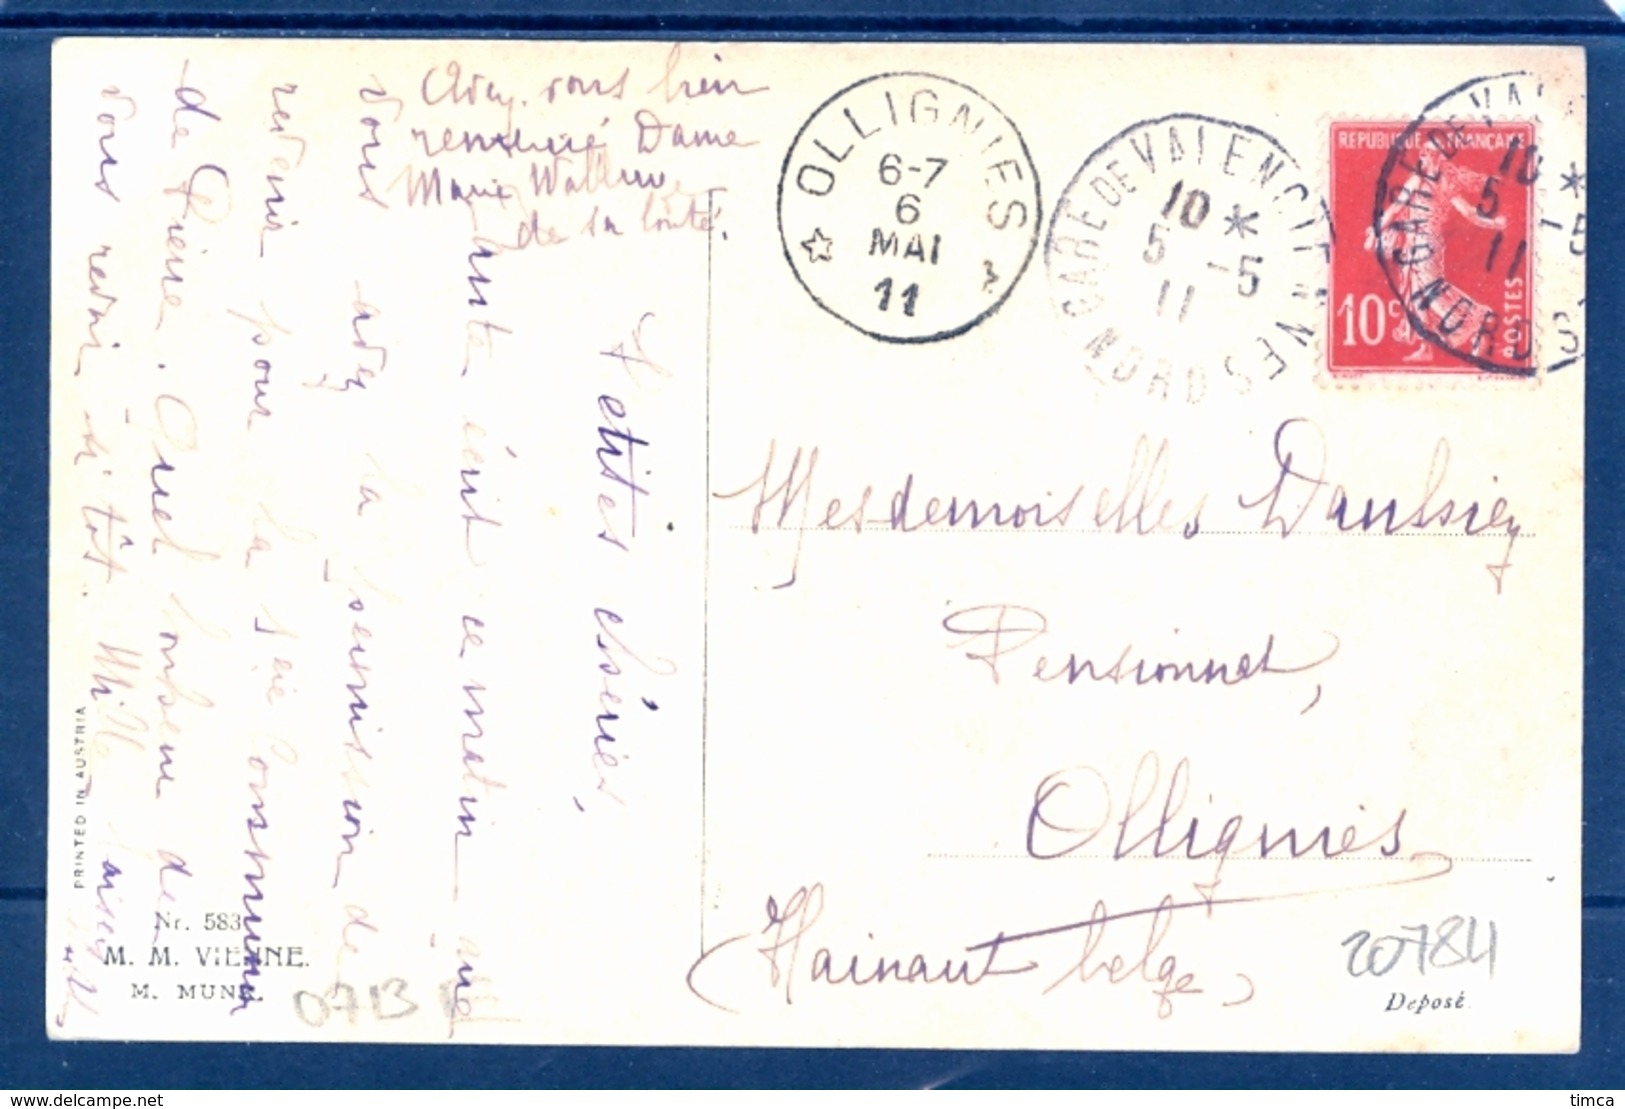 OLLIGNIES
6-7
6
MAI
11
GARE DE VALENCIENNES
10 *
5 - 5
11
NORD
REPUBLIQUE FRANÇAISE
10c
POSTES
GARE DE VAL
10 *
5 - 5
11
NORD
Avez-vous bien
remercié Dame
Marie
de sa bonté.
Petites chéries,
écrit ce matin que
vous avez la permission de
revenir pour la 1ère Communion
de Pierre. Quel bonheur de
vous revoir si tôt. Mille baisers
Mesdemoiselles
Pensionnat,
Ollignies
(Hainaut belge)
PRINTED IN AUSTRIA
Nr. 583
M. M. VIENNE.
M. MUNK.
0713
20784
Deposé
www.delcampe.net
timca